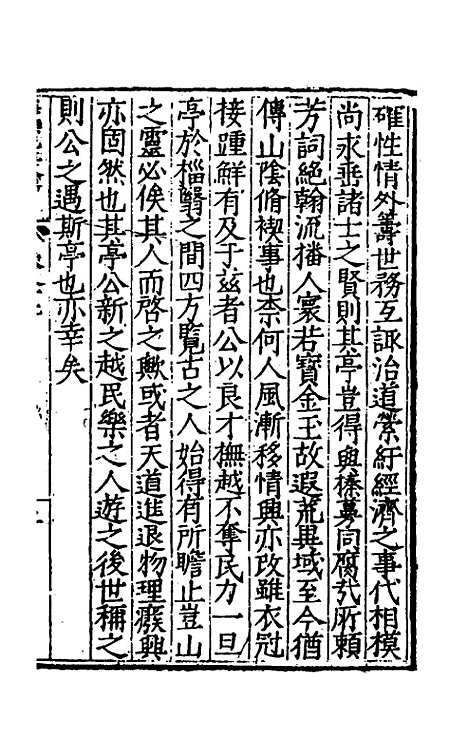 確性情外籌世務互諏治道縈紆經濟之事代相模
尚永垂諸士之賢則其亭豈得與榛募同腐㢤所頼
芳詞絶翰流播人寰若寶金玉故遐荒異域至今猶
傳山陰脩禊事也柰何人風漸移情興亦改雖衣冠
接踵鮮有及于兹者公以良才撫越不奪民力一旦
亭於椔翳之間四方覽古之人始得有所瞻止豈山
之靈必俟其人而啓之歟或者天道進退物理癈興
亦固然也其亭公新之越民樂之人遊之後世稱之
則公之遇斯亭也亦幸矣